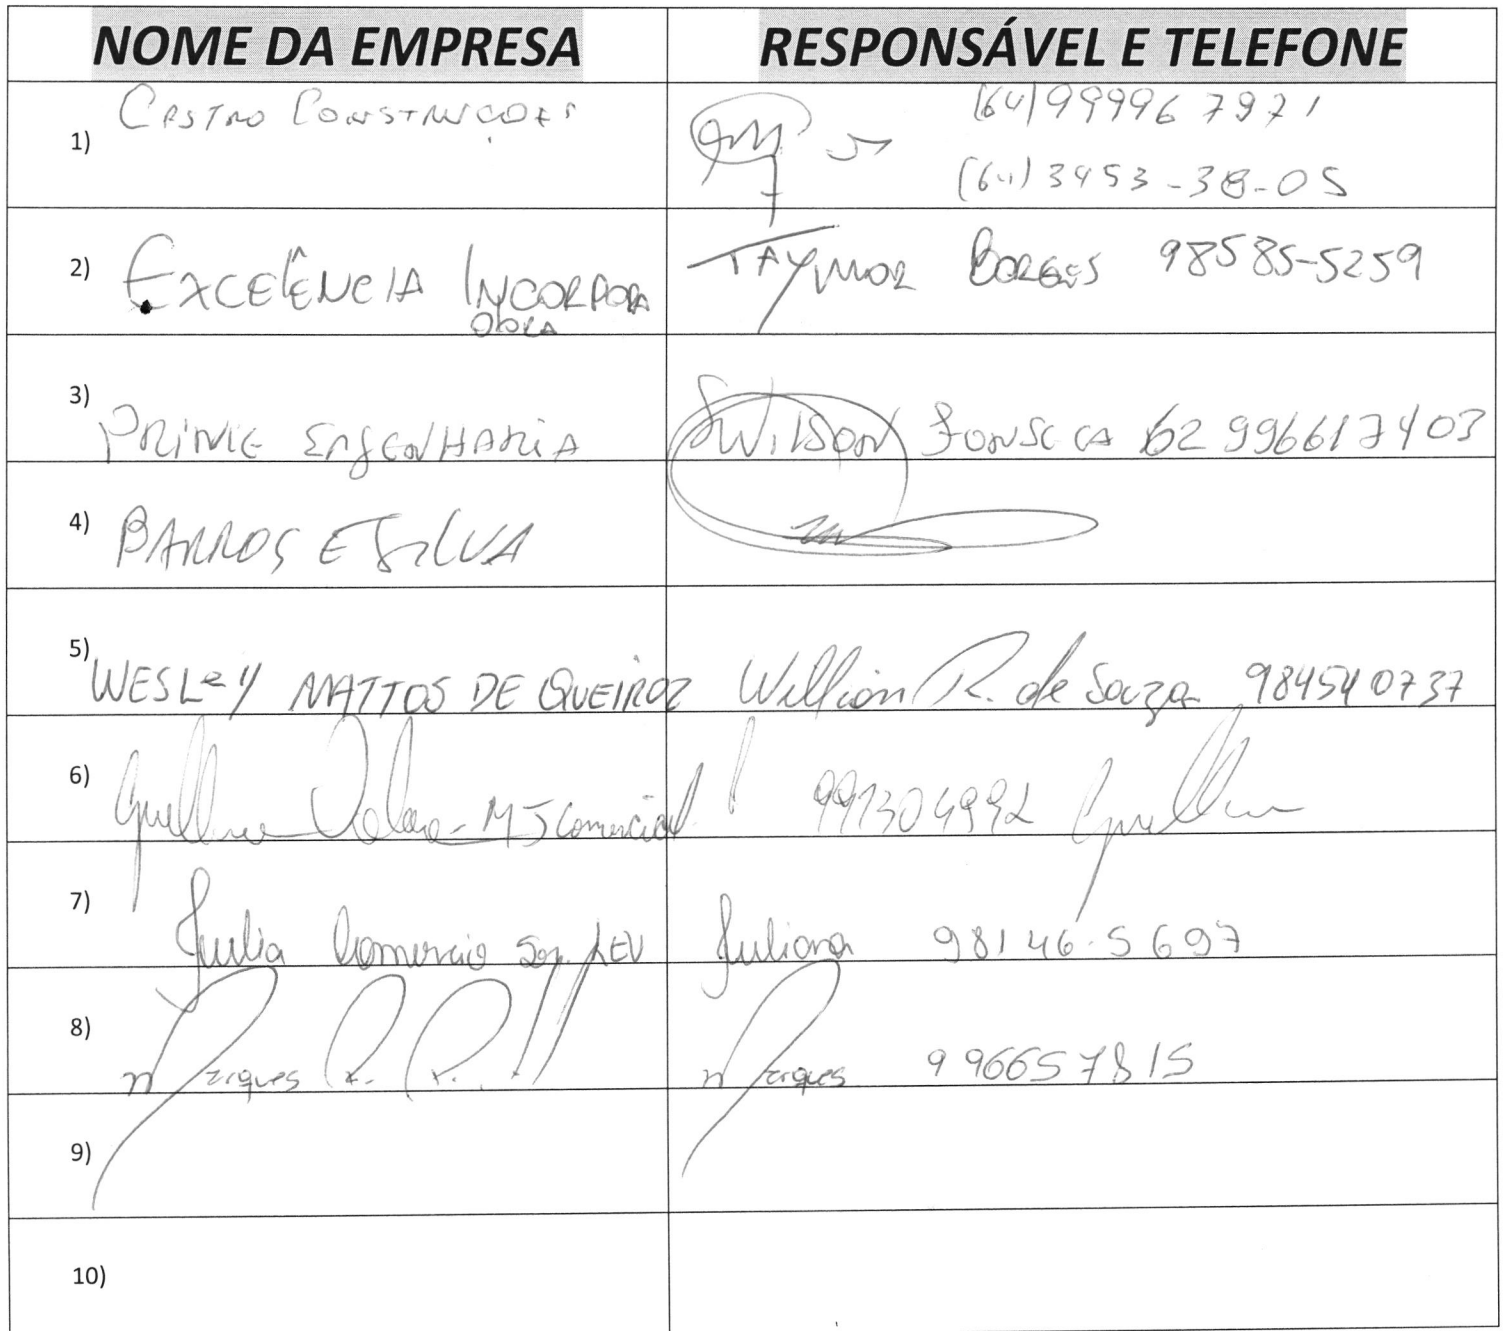 NOME DA EMPRESA RESPONSÁVEL E TELEFONE
1) CASTRO CONSTRUÇÕES (64) 99996 7971
(64) 3453-38-05
2) EXCELÊNCIA INCORPORA TAYMOR BORGES 98585-5259
OBRA
3) PRIME ENGENHARIA WILSON FONSECA 62 996617403
4) BARROS E SILVA
5) WESLEY MATTOS DE QUEIROZ Willian R. de Souza 984540737
6) Guilherme - MJ Comercial 991304992
7) Julia Comercio LEV Juliana 98146-5697
8) Marques R. R. Marques 996657815
9)
10)